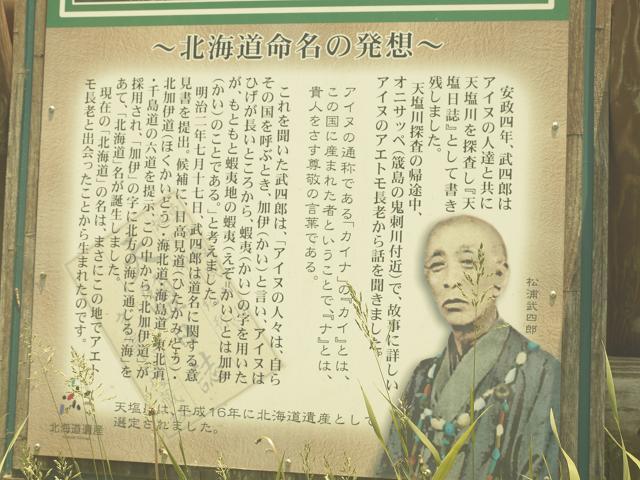 ～北海道命名の発想～
安政四年、武四郎は
アイヌの人達と共に
天塩川を探査し『天
塩日誌』として書き
残しました。
天塩川探査の帰途中、
オニサッペ(筬島の鬼刺川付近)で、故事に詳しい
アイヌのアエトモ長老から話を聞きました。
アイヌの通称である『カイナ』の『カイ』とは、
この国に産まれた者ということで、『ナ』とは、
貴人をさす尊敬の言葉である。
これを聞いた武四郎は、「アイヌの人々は、自ら
その国を呼ぶとき、加伊(かい)と言い、アイヌは
ひげが長いところから、蝦夷(かい)の字を用いた
が、もともと蝦夷地の蝦夷(えぞ・かい)とは加伊
(かい)のことである。」と考えました。
明治二年七月十七日、武四郎は道名に関する意
見書を提出。候補に、日高見道(ひたかみどう)・
北加伊道(ほくかいどう)・海北道・海島道・東北道
・千島道の六道を提示、この中から「北加伊道」が
採用され、「加伊」の字に北方の海に通じる「海」を
あて、「北海道」名が誕生しました。
現在の「北海道」の名は、まさにこの地でアエト
モ長老と出会ったことから生まれたのです。
松浦武四郎
天塩は、平成16年に北海道遺産として
選定されました。
北海道遺産